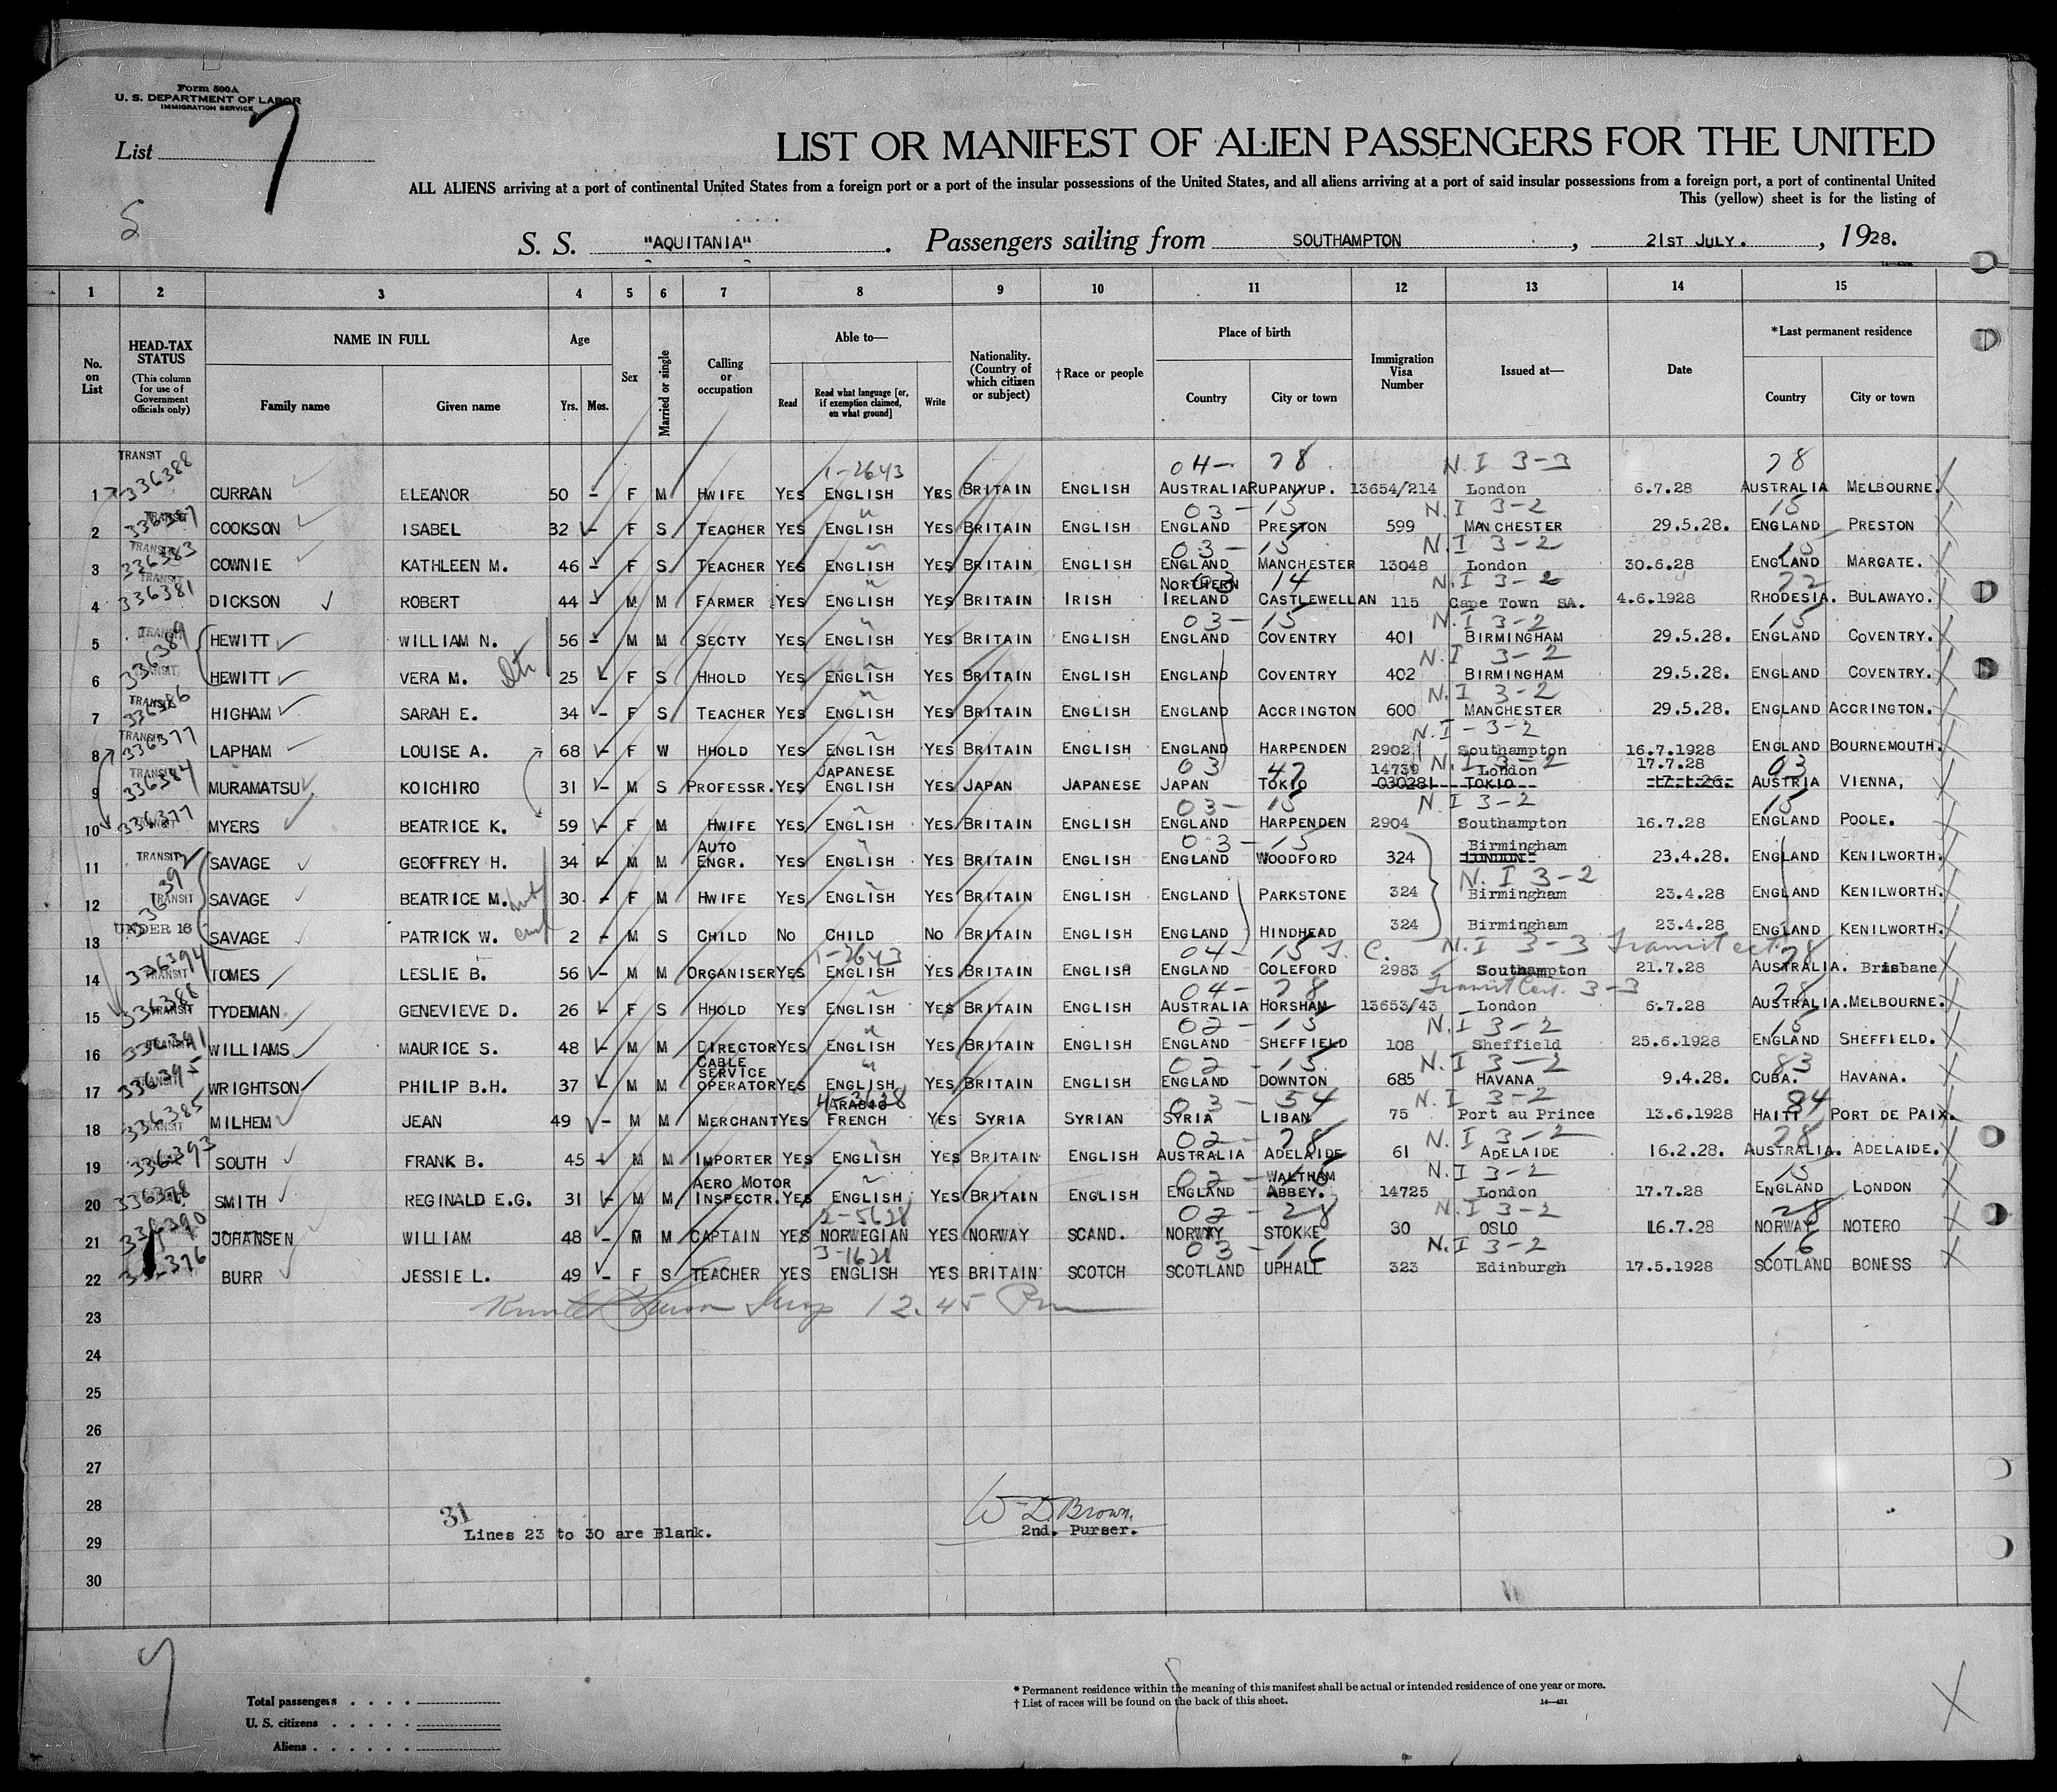 Form 500A
U. S. DEPARTMENT OF LABOR
IMMIGRATION SERVICE
List 7
LIST OR MANIFEST OF ALIEN PASSENGERS FOR THE UNITED
ALL ALIENS arriving at a port of continental United States from a foreign port or a port of the insular possessions of the United States, and all aliens arriving at a port of said insular possessions from a foreign port, a port of continental United
This (yellow) sheet is for the listing of
S. S. "AQUITANIA". Passengers sailing from SOUTHAMPTON, 21ST JULY., 1928.
1 2 3 4 5 6 7 8 9 10 11 12 13 14 15
No. on List
HEAD-TAX STATUS (This column for use of Government officials only)
NAME IN FULL Family name Given name
Age Yrs. Mos.
Sex
Married or single
Calling or occupation
Able to— Read Read what language [or, if exemption claimed, on what ground] Write
Nationality. (Country of which citizen or subject)
†Race or people
Place of birth Country City or town
Immigration Visa Number
Issued at—
Date
*Last permanent residence Country City or town
TRANSIT 1-2643 04- 78 N.I 3-3 78
1 336388 CURRAN ELEANOR 50 - F M HWIFE YES ENGLISH YES BRITAIN ENGLISH AUSTRALIA RUPANYUP. 13654/214 London 6.7.28 AUSTRALIA MELBOURNE.
03-15 N.I 3-2 15
2 TRANSIT COOKSON ISABEL 32 - F S TEACHER YES ENGLISH YES BRITAIN ENGLISH ENGLAND PRESTON 599 MANCHESTER 29.5.28. ENGLAND PRESTON
03-15 N.I 3-2 15
3 TRANSIT 336383 COWNIE KATHLEEN M. 46 - F S TEACHER YES ENGLISH YES BRITAIN ENGLISH ENGLAND MANCHESTER 13048 London 30.6.28 ENGLAND MARGATE.
03 14 N.I 3-2
4 TRANSIT 336381 DICKSON ROBERT 44 - M M FARMER YES ENGLISH YES BRITAIN IRISH NORTHERN IRELAND CASTLEWELLAN 115 Cape Town SA. 4.6.1928 RHODESIA. BULAWAYO.
03-15 N.I 3-2 15
5 TRANSIT 336389 HEWITT WILLIAM N. 56 - M M SECTY YES ENGLISH YES BRITAIN ENGLISH ENGLAND COVENTRY 401 BIRMINGHAM 29.5.28. ENGLAND COVENTRY.
N.I 3-2
6 TRANSIT HEWITT VERA M. 25 - F S HHOLD YES ENGLISH YES BRITAIN ENGLISH ENGLAND COVENTRY 402 BIRMINGHAM 29.5.28. ENGLAND COVENTRY.
N.I 3-2
7 TRANSIT 336386 HIGHAM SARAH E. 34 - F S TEACHER YES ENGLISH YES BRITAIN ENGLISH ENGLAND ACCRINGTON 600 MANCHESTER 29.5.28. ENGLAND ACCRINGTON.
N.I-3-2
8 TRANSIT 336377 LAPHAM LOUISE A. 68 - F W HHOLD YES ENGLISH YES BRITAIN ENGLISH ENGLAND HARPENDEN 2902 Southampton 16.7.1928 ENGLAND BOURNEMOUTH.
03 47 N.I 3-2 03
9 TRANSIT 336384 MURAMATSU KOICHIRO 31 - M S PROFESSR. YES JAPANESE ENGLISH YES JAPAN JAPANESE JAPAN TOKIO 14739 030281 London TOKIO 17.7.28 17.1.26. AUSTRIA VIENNA,
03-15 N.I 3-2 15
10 336377 MYERS BEATRICE K. 59 - F M HWIFE YES ENGLISH YES BRITAIN ENGLISH ENGLAND HARPENDEN 2904 Southampton 16.7.28 ENGLAND POOLE.
03-15
11 TRANSIT SAVAGE GEOFFREY H. 34 - M M AUTO ENGR. YES ENGLISH YES BRITAIN ENGLISH ENGLAND WOODFORD 324 Birmingham LONDON 23.4.28. ENGLAND KENILWORTH.
N.I 3-2
12 TRANSIT SAVAGE BEATRICE M. 30 - F M HWIFE YES ENGLISH YES BRITAIN ENGLISH ENGLAND PARKSTONE 324 Birmingham 23.4.28 ENGLAND KENILWORTH.
13 UNDER 16 SAVAGE PATRICK W. 2 - M S CHILD NO CHILD NO BRITAIN ENGLISH ENGLAND HINDHEAD 324 Birmingham 23.4.28 ENGLAND KENILWORTH.
1-2643 04-15 T. C. N.I 3-3 Transit cert. 78
14 336394 TRANSIT TOMES LESLIE B. 56 - M M ORGANISER YES ENGLISH YES BRITAIN ENGLISH ENGLAND COLEFORD 2983 Southampton 21.7.28 AUSTRALIA. Brisbane
04-78 Transit Cert. 3-3 78
15 336388 TRANSIT TYDEMAN GENEVIEVE D. 26 - F S HHOLD YES ENGLISH YES BRITAIN ENGLISH AUSTRALIA HORSHAM 13653/43 London 6.7.28 AUSTRALIA. MELBOURNE.
02-15 N.I 3-2 15
16 336391 TRANSIT WILLIAMS MAURICE S. 48 - M M DIRECTOR YES ENGLISH YES BRITAIN ENGLISH ENGLAND SHEFFIELD 108 Sheffield 25.6.1928 ENGLAND SHEFFIELD.
02-15 N.I 3-2 83
17 336395 WRIGHTSON PHILIP B.H. 37 - M M CABLE SERVICE OPERATOR YES ENGLISH YES BRITAIN ENGLISH ENGLAND DOWNTON 685 HAVANA 9.4.28. CUBA. HAVANA.
03-54 N.I 3-2 84
18 336385 TRANSIT MILHEM JEAN 49 - M M MERCHANT YES ARABIC FRENCH YES SYRIA SYRIAN SYRIA LIBAN 75 Port au Prince 13.6.1928 HAITI PORT DE PAIX.
02-78 N.I 3-2 78
19 336393 SOUTH FRANK B. 45 - M M IMPORTER YES ENGLISH YES BRITAIN ENGLISH AUSTRALIA ADELAIDE 61 ADELAIDE 16.2.28. AUSTRALIA. ADELAIDE.
02-15 N.I 3-2 15
20 336378 SMITH REGINALD E.G. 31 - M M AERO MOTOR INSPECTR. YES ENGLISH YES BRITAIN ENGLISH ENGLAND WALTHAM ABBEY. 14725 London 17.7.28 ENGLAND LONDON
2-5628 02-28 N.I 3-2 28
21 336390 JOHANSEN WILLIAM 48 - M M CAPTAIN YES NORWEGIAN YES NORWAY SCAND. NORWAY STOKKE 30 OSLO 16.7.28 NORWAY NOTERO
3-1628 03-16 N.I 3-2 16
22 BURR JESSIE L. 49 - F S TEACHER YES ENGLISH YES BRITAIN SCOTCH SCOTLAND UPHALL 323 Edinburgh 17.5.1928 SCOTLAND BONESS
12.45 Pm
23
24
25
26
27
28
29
30
31
Lines 23 to 30 are Blank.
W D Brown.
2nd. Purser.
Total passengers . . . .
U. S. citizens . . . . .
Aliens . . . . . .
* Permanent residence within the meaning of this manifest shall be actual or intended residence of one year or more.
† List of races will be found on the back of this sheet.
14—431